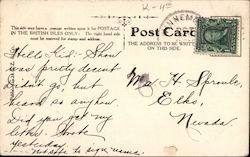 K-45
This side may have a message written upon it for POSTAGE
IN THE BRITISH ISLES ONLY: The right hand side
must be reserved for stamp and address.
Post Card
THE ADDRESS TO BE WRITTEN
ON THIS SIDE.
Hello Kid:- Show
was pretty decent
Didn't go, but
heard so anyhow.
Did you get my
letter. Wrote
yesterday.
not safe to sign name.
H. Sproule,
Elko,
Nevada